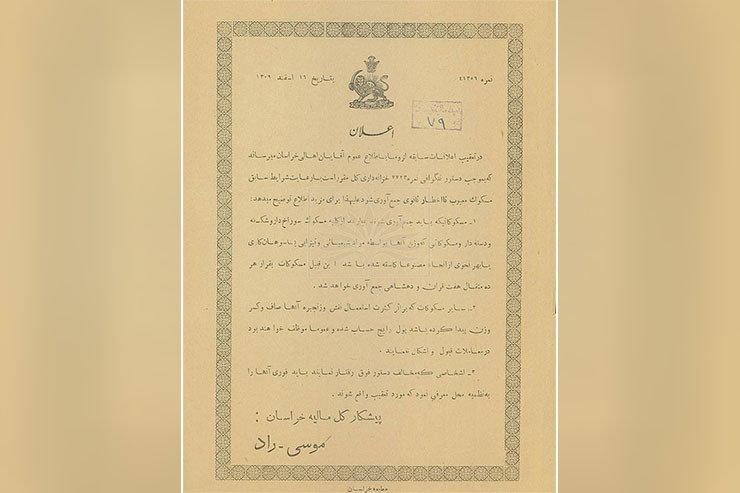 نمره ۴۱۳۰۶
بتاریخ ۱۶ اسفند ۱۳۰۹
۷۹
اعلان
در تعقیب اعلانات سابقه لزوماً باطلاع عموم آقایان اهالی خراسان میرساند
که بموجب دستور تلگرافی نمره خزانه داری کل مقرر است با رعایت شرایط سابق
مسکوك معیوب تا اخطار ثانوی جمع آوری شود علیهذا برای مزید اطلاع توضیح میدهد:
۱ـ مسکوکاتیکه باید جمع آوری شود مسکوك سوراخ دار و شکسته
و دسته دار و مسکوکاتی که وزن آنها بواسطه مواد شیمیائی و تیزابی یا سوهان کاری
یا بهر نحوی از انحاء مصنوعاً کاسته شده باشد این قبیل مسکوکات بقرار هر
ده مثقال هفت قران و دهشاهی جمع آوری خواهد شد .
۲ـ سایر مسکوکات که براثر کثرت استعمال نقش و زنجیره آنها صاف و کسر
وزن پیدا کرده باشد پول رایج حساب شده و عموماً موظف خواهند بود
در معاملات قبول و اشکال ننمایند .
۳ـ اشخاصی که مخالف دستور فوق رفتار نمایند باید فوری آنها را
به نظمیه محل معرفی نمود که مورد تعقیب واقع شوند .
پیشکار کل مالیه خراسان :
موسی ـ راد
مطبعه خراسان